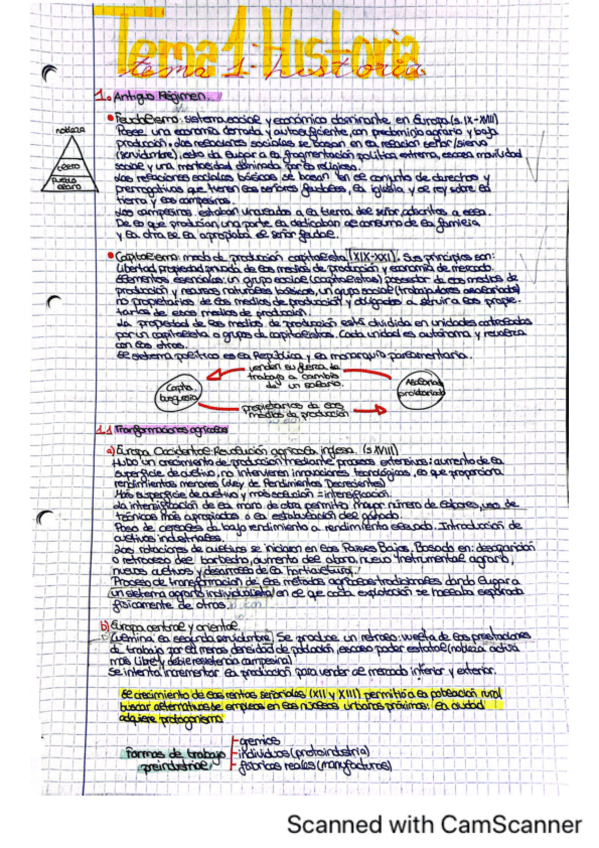 Tema 1: Historia
tema 1: historia
1. Antiguo Régimen.
nobleza
clero
pueblo
llano
• Feudalismo: sistema social y económico dominante en Europa (s. IX-XVIII)
Posee una economía cerrada y autosuficiente, con predominio agrario y baja
producción. Las relaciones sociales se basan en la relación señor/siervo
(servidumbre), esto da lugar a la fragmentación política extrema, escasa movilidad
social y una mentalidad dominada por lo religioso.
Las relaciones sociales básicas se basan en el conjunto de derechos y
prerrogativas que tienen los señores feudales, la iglesia y el rey sobre la
tierra y los campesinos.
Los campesinos estaban vinculados a la tierra del señor, adscritos a ella.
De lo que producían una parte la dedicaban al consumo de la familia
y la otra se la apropiaba el señor feudal.
• Capitalismo: modo de producción capitalista (XIX-XXI). Sus principios son:
Libertad, propiedad privada de los medios de producción y economía de mercado.
Elementos esenciales: un grupo social (capitalistas) poseedor de los medios de
producción y recursos naturales básicos, un grupo social (trabajadores asalariados)
no propietarios de los medios de producción y obligados a servir a los propie-
tarios de esos medios de producción.
La propiedad de los medios de producción está dividida en unidades controladas
por un capitalista o grupos de capitalistas. Cada unidad es autónoma y
con las otras.
El sistema político es la República y la monarquía parlamentaria.
venden su fuerza de
trabajo a cambio
de un salario.
burguesía
proletariado
propietarios de los
medios de producción
1.1 Transformaciones agrícolas
a) Europa Occidental: Revolución agrícola inglesa. (s. XVIII)
Hubo un crecimiento de producción mediante procesos extensivos: aumento de la
superficie de cultivo, no intervienen innovaciones tecnológicas, lo que proporciona
rendimientos menores (Ley de Rendimientos Decrecientes)
Más superficie de cultivo y más = intensificación.
La intensificación de la mano de obra permitió mayor número de labores, uso de
técnicas más apropiadas o la estabulación del ganado.
Paso de cereales de bajo rendimiento a rendimiento elevado. Introducción de
cultivos industriales.
Las rotaciones de cultivos se iniciaron en los Países Bajos. Basado en: desaparición
o retroceso del barbecho, aumento del abono, nuevo instrumental agrario,
nuevos cultivos y desarrollo de la horticultura.
Proceso de transformación de los métodos agrícolas tradicionales dando lugar a
un sistema agrario individualista en el que cada explotación se hallaba separada
físicamente de otras.
b) Europa central y oriental
Culmina la segunda servidumbre. Se produce un retroceso: vuelta de las prestaciones
de trabajo por el menos densidad de población, escaso poder estatal (nobleza actúa
más libre) y débil resistencia campesina)
Se intenta incrementar la producción para vender al mercado interior y exterior.
El crecimiento de las rentas señoriales (XII y XIII) permitió a la población rural
buscar alternativas de empleos en los núcleos urbanos próximos: la ciudad
adquiere protagonismo
Formas de trabajo
preindustrial
gremios
individuos (protoindustria)
fábricas reales (manufacturas)
Scanned with CamScanner